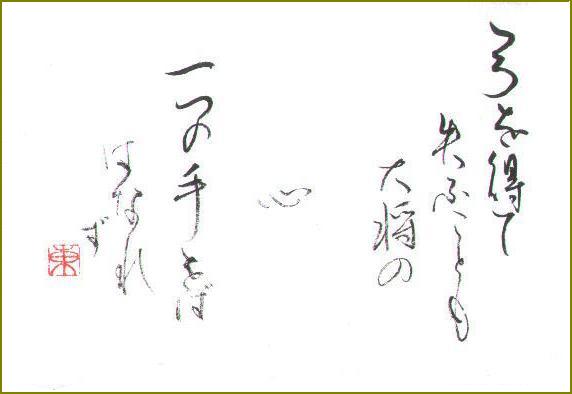 弓を得て
失ふことも
大将の
心
一つの手をば
はなれ
ず
東